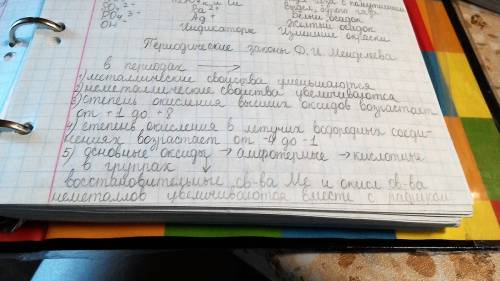 SO₃²⁻
PO₄³⁻ Ag⁺ Желтый осадок
OH⁻ Индикаторы Изменение окраски
Периодические законы Д. И. Менделеева
в периодах →
1) металлические свойства уменьшаются
2) неметаллические свойства увеличиваются
3) степень окисления высших оксидов возрастает
от +1 до +8
4) степень окисления в летучих водородных соеди-
нениях возрастает от -4 до -1
5) основные оксиды → амфотерные → кислотные
в группах ↓
восстановительные св-ва Ме и окисл св-ва
неметаллов увеличиваются вместе с радиусом